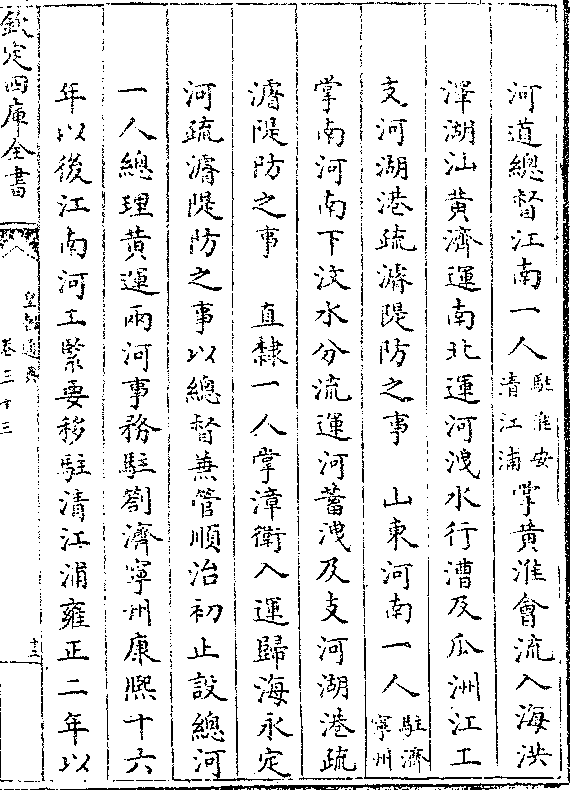 河道總督江南一人駐淮安清江浦掌黃淮會流入海洪
澤湖汕黃濟運南北運河洩水行漕及瓜洲江工
支河湖港疏濬隄防之事　山東河南一人駐濟寧州
掌南河南下汶水分流運河蓄洩及支河湖港疏
濬隄防之事　直隸一人掌漳衛入運歸海永定
河疏濬隄防之事以總督兼管順治初止設總河
一人總理黃運兩河事務駐劄濟寧州康熙十六
年以後江南河工緊要移駐清江浦雍正二年以
欽定四庫全書
皇朝通典
卷三十三